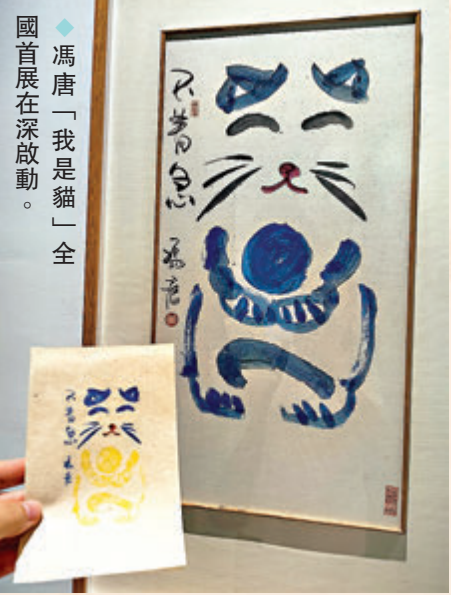 ◆馮唐「我是貓」全
國首展在深啟動。
不着急
馮唐
不着急